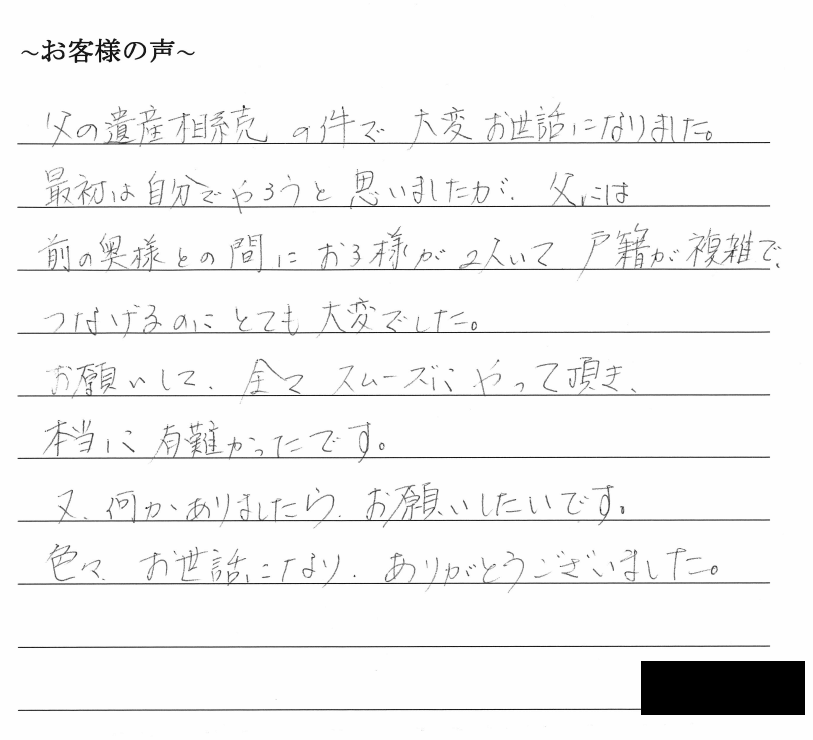 ~お客様の声~
父の遺産相続の件で大変お世話になりました。
最初は自分でやろうと思いましたが、父には
前の奥様との間にお子様が2人いて戸籍が複雑で、
つなげるのにとても大変でした。
お願いして、全てスムーズにやって頂き、
本当に有難かったです。
又、何かありましたら、お願いしたいです。
色々、お世話になり、ありがとうございました。